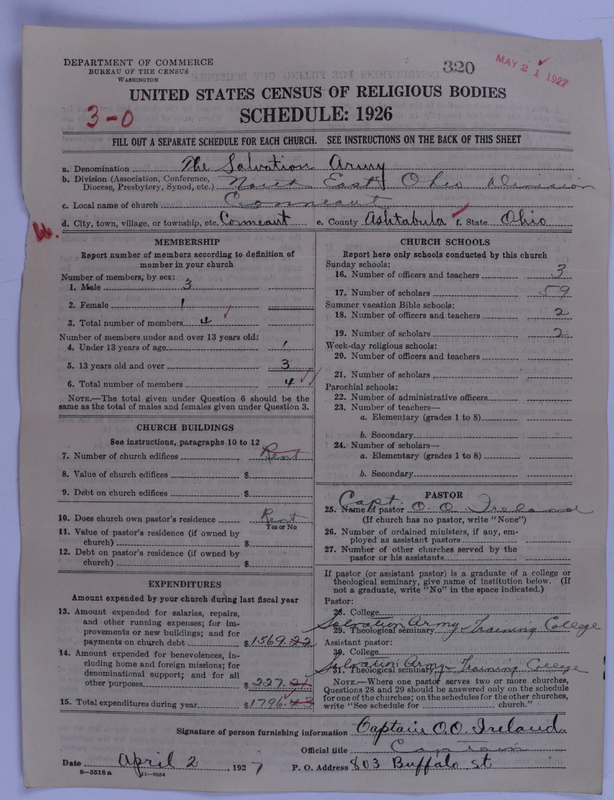 DEPARTMENT OF COMMERCE
BUREAU OF THE CENSUS
WASHINGTON
320
MAY 21 1927
UNITED STATES CENSUS OF RELIGIOUS BODIES
3-0
SCHEDULE: 1926
FILL OUT A SEPARATE SCHEDULE FOR EACH CHURCH. SEE INSTRUCTIONS ON THE BACK OF THIS SHEET
a. Denomination The Salvation Army
b. Division (Association, Conference, Diocese, Presbytery, Synod, etc.) North East Ohio Division
c. Local name of church Conneaut
d. City, town, village, or township, etc. Conneaut e. County Ashtabula f. State Ohio
MEMBERSHIP
Report number of members according to definition of
member in your church
Number of members, by sex:
1. Male 3
2. Female 1
3. Total number of members 4
Number of members under and over 13 years old:
4. Under 13 years of age 1
5. 13 years old and over 3
6. Total number of members 4
NOTE.—The total given under Question 6 should be the
same as the total of males and females given under Question 3.
CHURCH BUILDINGS
See instructions, paragraphs 10 to 12
7. Number of church edifices Rent
8. Value of church edifices $
9. Debt on church edifices $
10. Does church own pastor's residence Rent
Yes or No
11. Value of pastor's residence (if owned by
church) $
12. Debt on pastor's residence (if owned by
church) $
EXPENDITURES
Amount expended by your church during last fiscal year
13. Amount expended for salaries, repairs,
and other running expenses; for im-
provements or new buildings; and for
payments on church debt $ 1569.22
14. Amount expended for benevolences, in-
cluding home and foreign missions; for
denominational support; and for all
other purposes $ 227.21
15. Total expenditures during year $ 1796.43
CHURCH SCHOOLS
Report here only schools conducted by this church
Sunday schools:
16. Number of officers and teachers 3
17. Number of scholars 59
Summer vacation Bible schools:
18. Number of officers and teachers 2
19. Number of scholars 2
Week-day religious schools:
20. Number of officers and teachers
21. Number of scholars
Parochial schools:
22. Number of administrative officers
23. Number of teachers—
a. Elementary (grades 1 to 8)
b. Secondary
24. Number of scholars—
a. Elementary (grades 1 to 8)
b. Secondary
PASTOR
25. Name of pastor Capt. O. O. Ireland
(If church has no pastor, write "None")
26. Number of ordained ministers, if any, em-
ployed as assistant pastors
27. Number of other churches served by the
pastor or his assistants
If pastor (or assistant pastor) is a graduate of a college or
theological seminary, give name of institution below. (If
not a graduate, write "No" in the space indicated.)
Pastor:
28. College
29. Theological seminary Salvation Army Training College
Assistant pastor:
30. College
31. Theological seminary Salvation Army Training College
NOTE.—Where one pastor serves two or more churches,
Questions 28 and 29 should be answered only on the schedule
for one of the churches; on the schedules for the other churches,
write "See schedule for church."
Signature of person furnishing information Captain O.O. Ireland
Official title Captain
Date April 2, 1927 P. O. Address 803 Buffalo st
8—5518a 11—7034